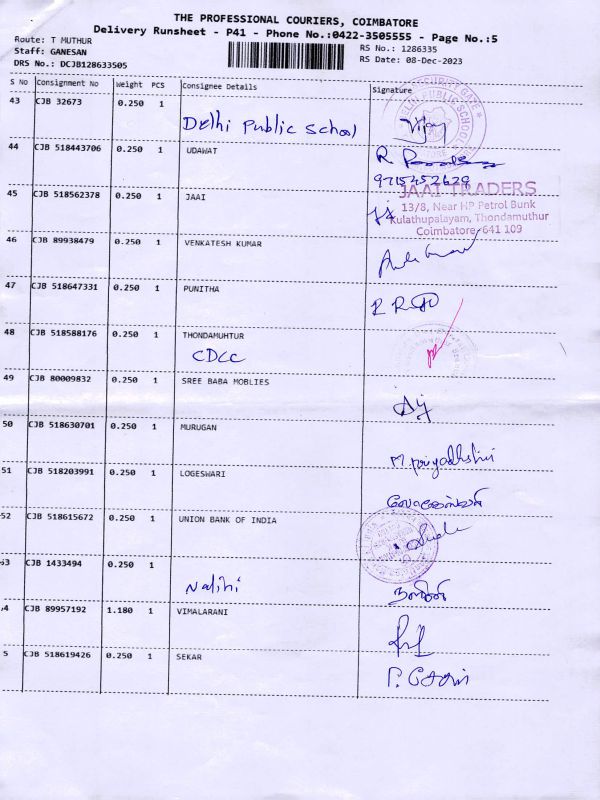 THE PROFESSIONAL COURIERS, COIMBATORE
Delivery Runsheet - P41 - Phone No.:0422-3505555 - Page No.:5
Route: T MUTHUR
RS No.: 1286335
Staff: GANESAN
RS Date: 08-Dec-2023
DRS No.: DCJB128633505
S No Consignment No Weight PCS Consignee Details Signature
43 CJB 32673 0.250 1
Delhi Public School Vijay
44 CJB 518443706 0.250 1 UDAWAT R
9715452629
45 CJB 518562378 0.250 1 JAAI
JAAI TRADERS
13/8, Near HP Petrol Bunk
Kulathupalayam, Thondamuthur
Coimbatore 641 109
46 CJB 89938479 0.250 1 VENKATESH KUMAR
47 CJB 518647331 0.250 1 PUNITHA
48 CJB 518588176 0.250 1 THONDAMUHTUR
CDCC
49 CJB 80009832 0.250 1 SREE BABA MOBLIES
50 CJB 518630701 0.250 1 MURUGAN
51 CJB 518203991 0.250 1 LOGESWARI
52 CJB 518615672 0.250 1 UNION BANK OF INDIA
53 CJB 1433494 0.250 1
Nalini நளினி
4 CJB 89957192 1.180 1 VIMALARANI
5 CJB 518619426 0.250 1 SEKAR